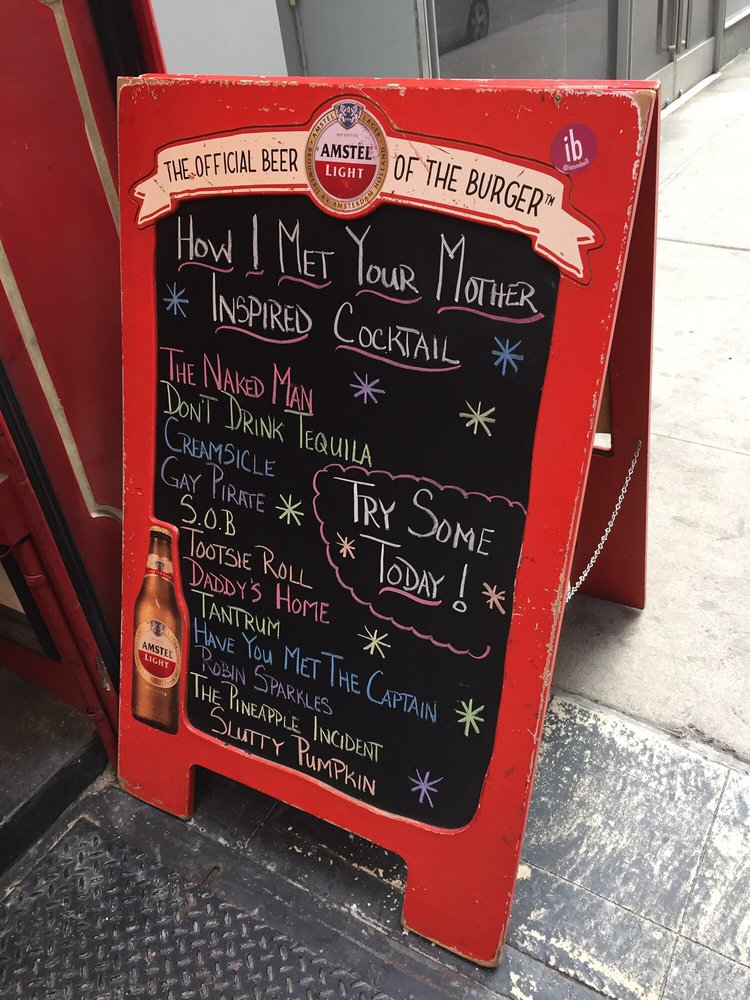 THE OFFICIAL BEER OF THE BURGER™
AMSTEL LAGER
IMPORTED
AMSTEL
LIGHT
ib
@ionmbell
HOW I MET YOUR MOTHER
INSPIRED COCKTAIL
THE NAKED MAN
DON'T DRINK TEQUILA
CREAMSICLE
GAY PIRATE
S.O.B
TOOTSIE ROLL
DADDY'S HOME
TANTRUM
HAVE YOU MET THE CAPTAIN
ROBIN SPARKLES
THE PINEAPPLE INCIDENT
SLUTTY PUMPKIN
TRY SOME
TODAY!
AMSTEL
LIGHT